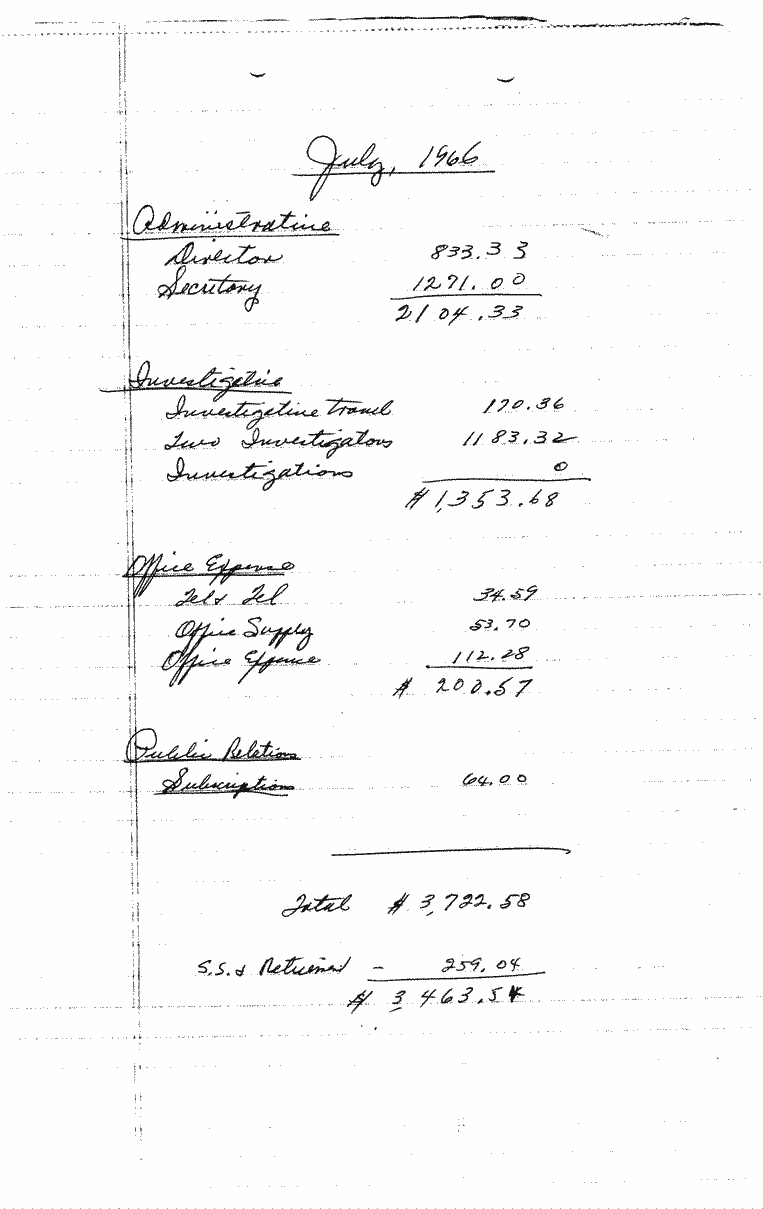 July, 1966
Administrative
Director 833.33
Secretary 1271.00
2104.33
Investigative
Investigative travel 170.36
Two Investigators 1183.32
Investigations 0
$1,353.68
Office Expense
Tel & Tel 34.59
Office Supply 53.70
Office Expense 112.28
$ 200.57
Public Relations
Subscriptions 64.00
Total $ 3,722.58
S.S. & Retirement - 259.04
$ 3463.54